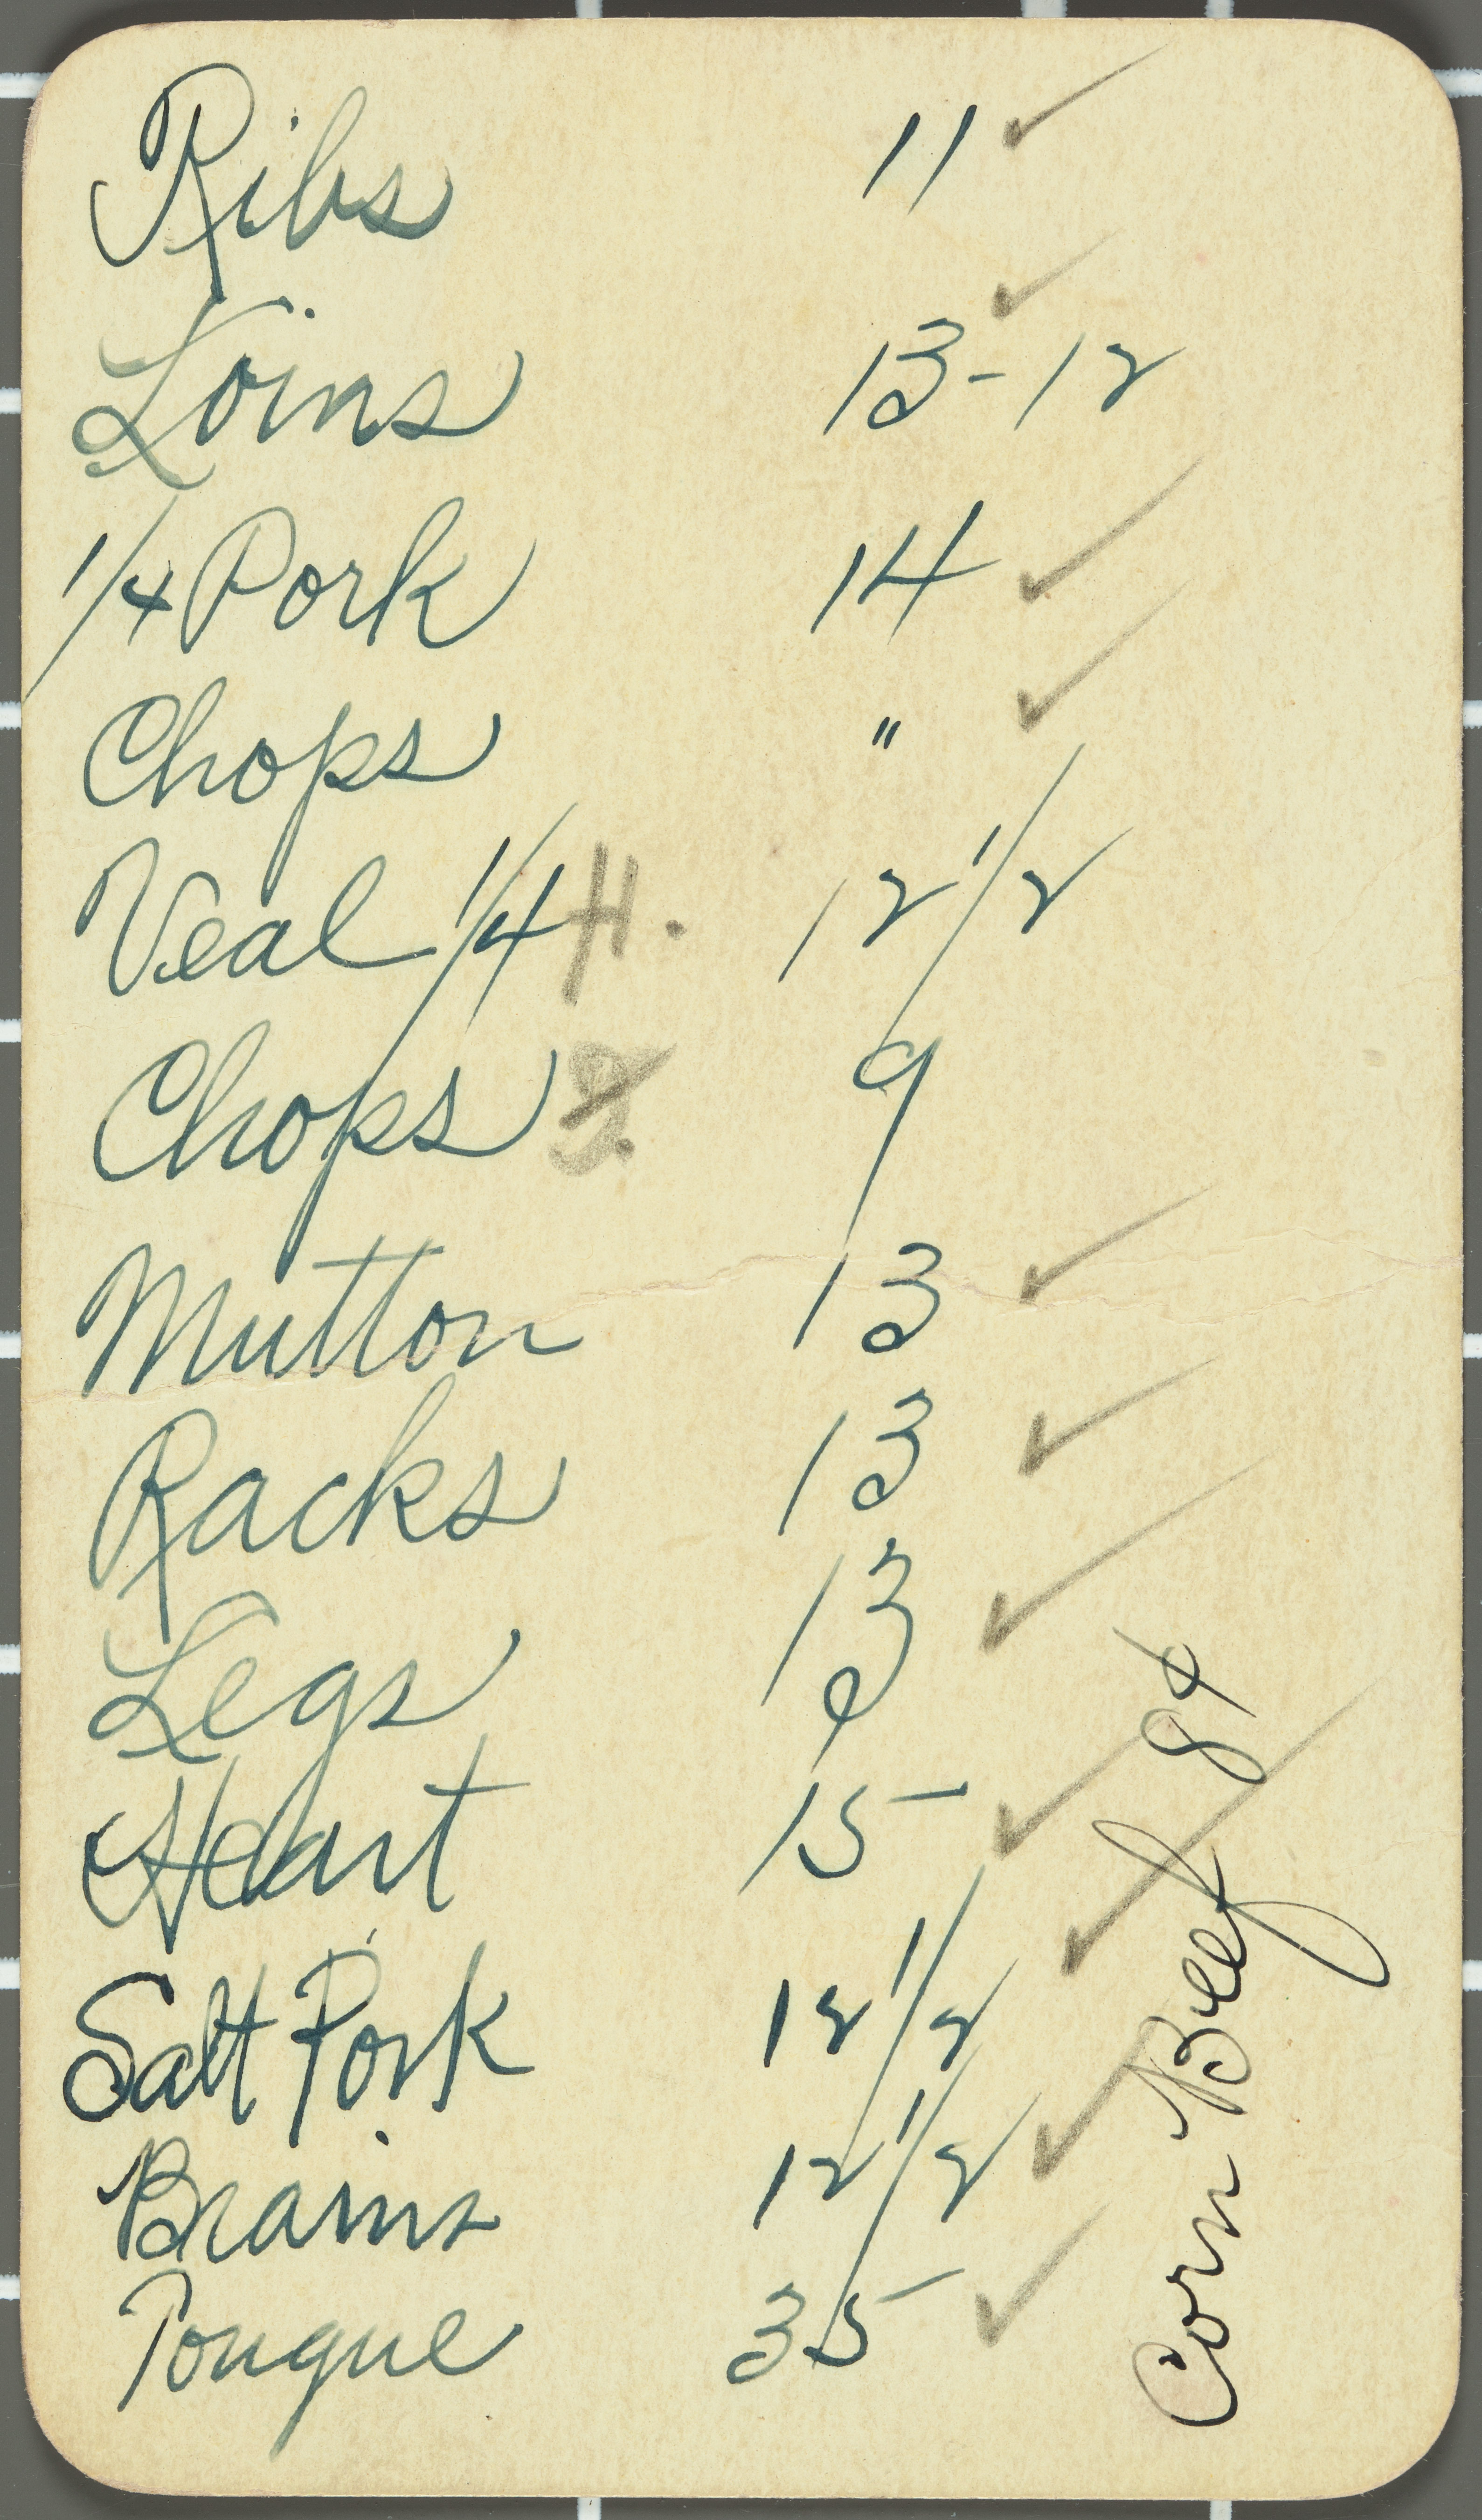 Ribs 11 ✓
Loins 13-12 ✓
1/4 Pork 14 ✓
Chops " ✓
Veal 1/4 H. 12 1/2
Chops 9
Mutton 13 ✓
Racks 13 ✓
Legs 13 ✓
Heart 15 ✓
Salt Pork 12 1/2 ✓
Brains 12 1/2 ✓
Tongue 35 ✓
Corn Beef 8¢